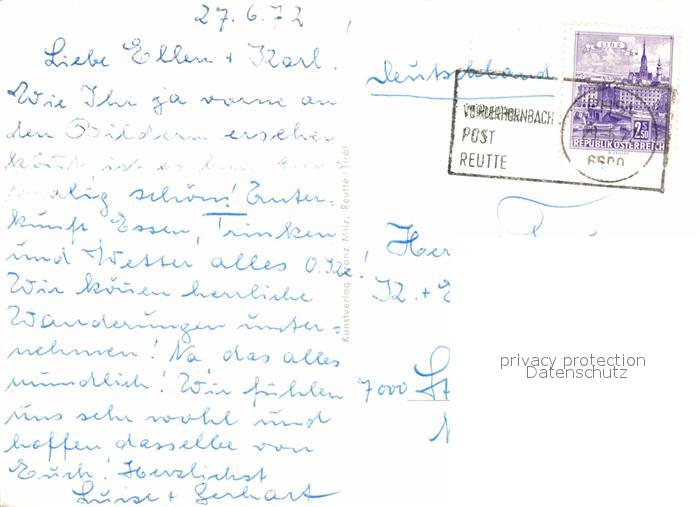 27.6.72
Liebe Ellen + Karl.
Wie Ihr ja vorne an
den Bildern ersehen
könt ist es hier
malig schön! Unter-
kunft Essen, Trinken
und Wetter alles O.Ke!
Wir könen herrliche
Wanderungen unter-
nehmen! Na das alles
mündlich! Wir fühlen
uns sehr wohl und
hoffen dasselbe von
Euch! Herzlichst
Luise + Gerhart
Kunstverlag Franz Milz, Reutte/Tirol
Deutschland
LINZ
2.50
REPUBLIK ÖSTERREICH
VORDERHORNBACH
POST
REUTTE
6600
F
Her
K. +
7000 St
privacy protection
Datenschutz